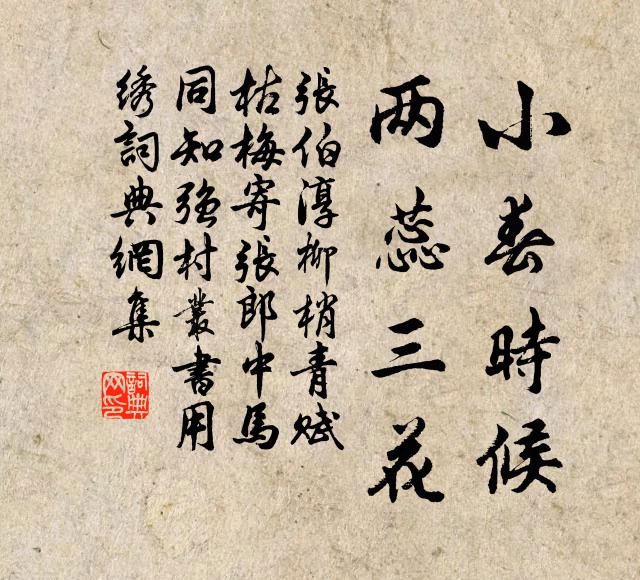 小春時候
两蕊三花
張伯淳柳梢青賦
枯梅寄張郎中馬
同知強村叢書用
绣詞典網集
詞典
网印